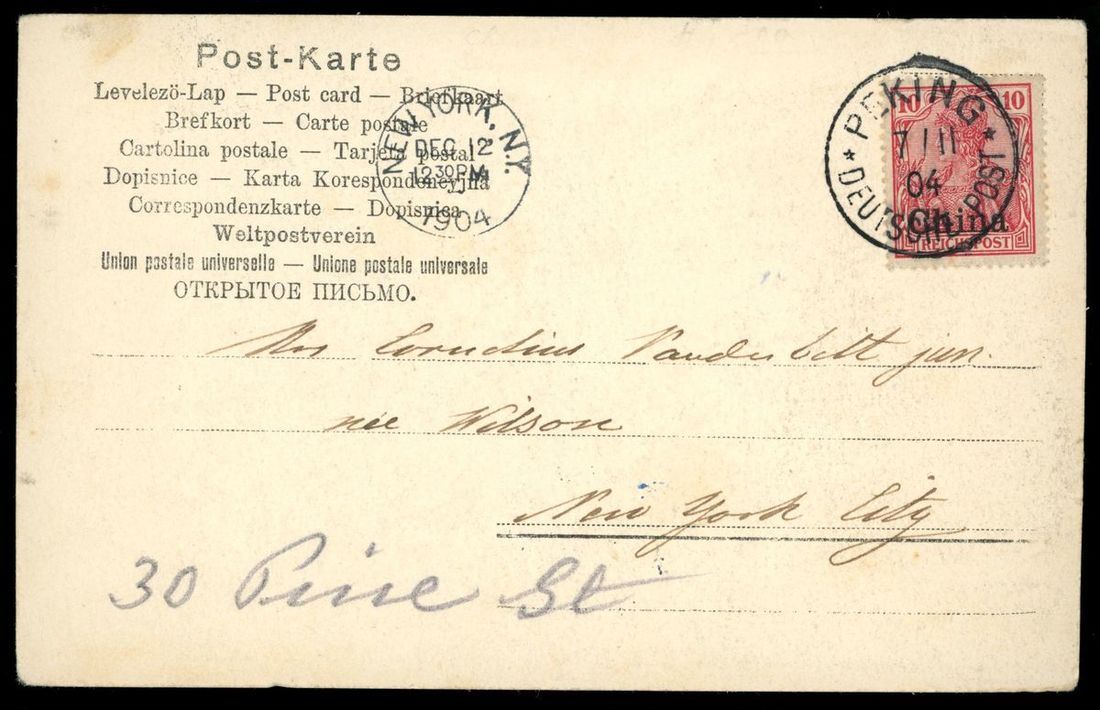 Post-Karte
Levelezö-Lap — Post card — Briefkaart
Brefkort — Carte postale
Cartolina postale — Tarjeta postal
Dopisnice — Karta Korespondencyjna
Correspondenzkarte — Dopisnica
Weltpostverein
Union postale universelle — Unione postale universale
ОТКРЫТОЕ ПИСЬМО.
NEW YORK, N.Y.
DEC 12
12 30 PM
1904
PEKING
7/11
04
DEUTSCHE POST
10 10
China
REICHSPOST
Mrs Cornelius Vanderbilt jun.
née Wilson
New York City
30 Pine St